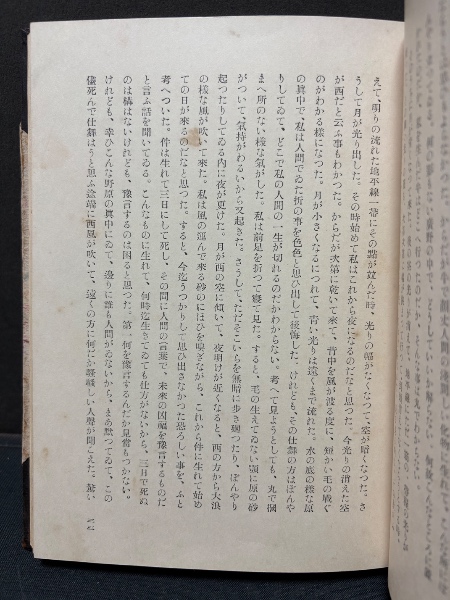 えて、明りの流れた地平線一帯にその點が竝んだ時、光りの幅がなくなつて、空が暗くなつた。さ
うして月が光り出した。その時始めて私はこれから夜になるのだなと思つた。今光りの消えた空
が西だと云ふ事もわかつた。からだが次第に乾いて來て、背中を風が渡る度に、短かい毛の戰ぐ
のがわかる樣になつた。月が小さくなるにつれて、靑い光りは遠くまで流れた。水の底の樣な原
の眞中で、私は人間でゐた折の事を色色と思ひ出して後悔した。けれども、その仕舞の方はぼんや
りしてゐて、どこで私の人間の一生が切れるのだかわからない。考へて見ようとしても、丸で摑
まへ所のない樣な氣がした。私は前足を折つて寢て見た。すると、毛の生えてゐない顎に原の砂
がついて、氣持がわるいから又起きた。さうして、ただそこいらを無暗に步き𢌞つたり、ぼんやり
起つたりしてゐる内に夜が更けた。月が西の空に傾いて、夜明けが近くなると、西の方から大浪
の樣な風が吹いて來た。私は風の運んで來る砂のにほひを嗅ぎながら、これから件に生れて始め
ての日が來るのだなと思つた。すると、今迄うつかりして思ひ出さなかつた恐ろしい事を、ふと
考へついた。件は生れて三日にして死し、その間に人間の言葉で、未來の凶福を豫言するものだ
と言ふ話を聞いてゐる。こんなものに生れて、何時迄生きてゐても仕方がないから、三日で死ぬ
のは構はないけれども、豫言するのは困ると思つた。第一何を豫言するんだか見當もつかない。
けれども、幸ひこんな野原の眞中にゐて、邊りに誰も人間がゐないから、まあ默つてゐて、この
儘死んで仕舞はうと思ふ途端に西風が吹いて、遠くの方に何だか騷騷しい人聲が聞こえた。驚い